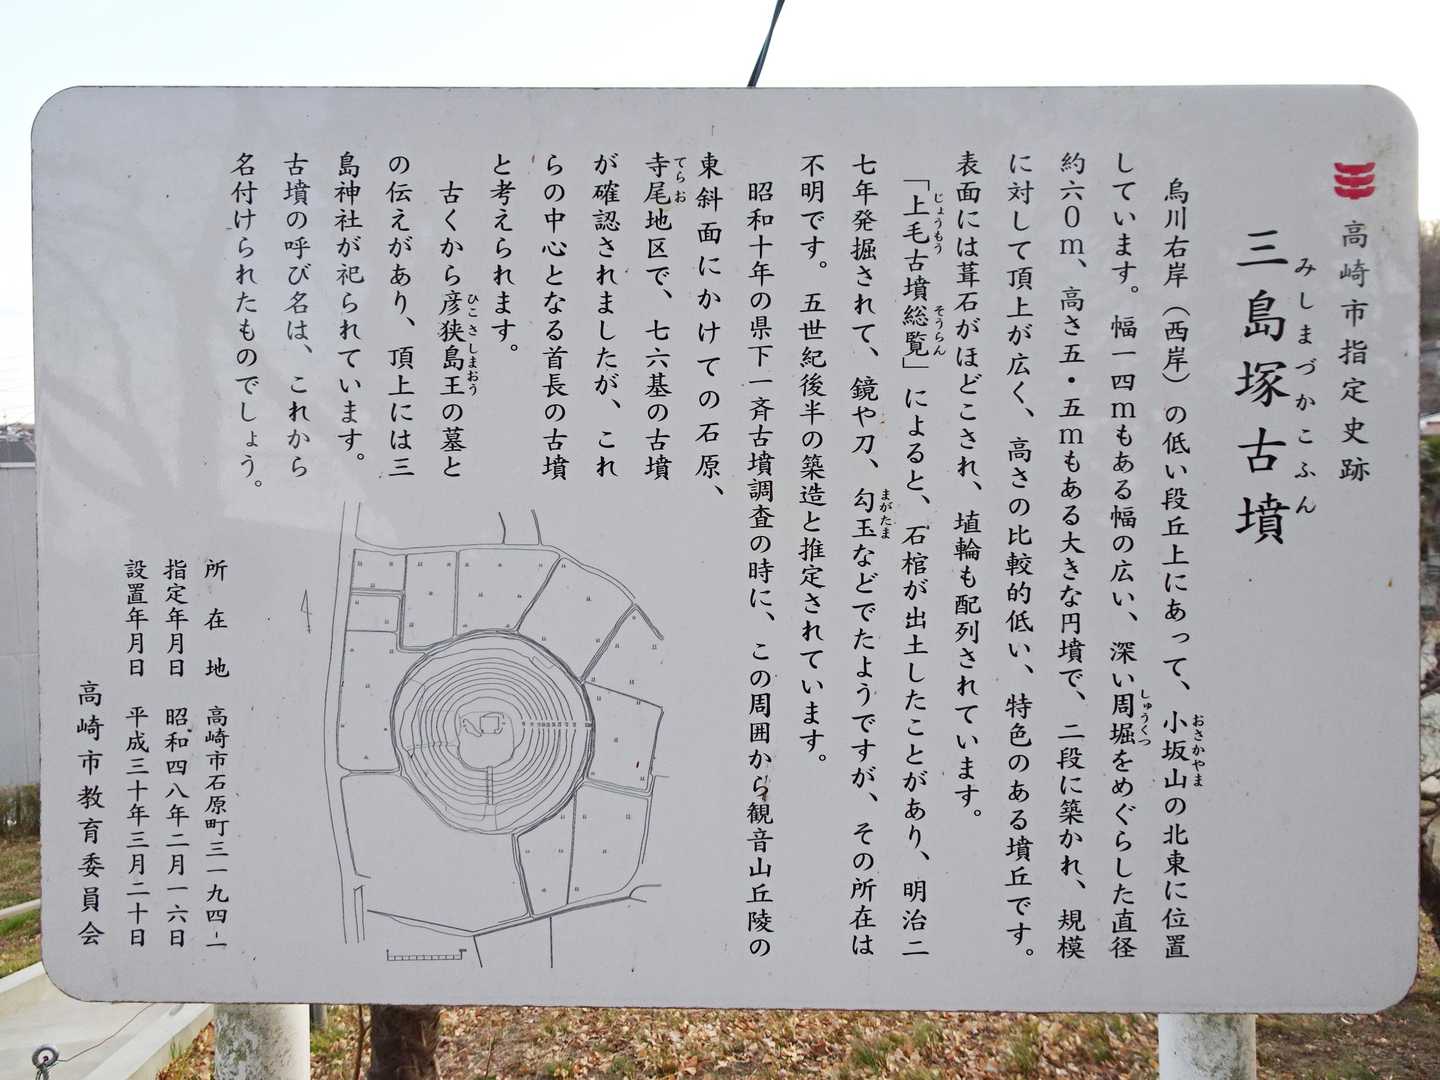 高崎市指定史跡
三島塚古墳
みしまづかこふん
烏川右岸（西岸）の低い段丘上にあって、小坂山の北東に位置
おさかやま
しています。幅一四ｍもある幅の広い、深い周堀をめぐらした直径
しゅうくつ
約六０ｍ、高さ五・五ｍもある大きな円墳で、二段に築かれ、規模
に対して頂上が広く、高さの比較的低い、特色のある墳丘です。
表面には葺石がほどこされ、埴輪も配列されています。
「上毛古墳総覧」によると、石棺が出土したことがあり、明治二
じょうもう
そうらん
七年発掘されて、鏡や刀、勾玉などでたようですが、その所在は
まがたま
不明です。五世紀後半の築造と推定されています。
昭和十年の県下一斉古墳調査の時に、この周囲から観音山丘陵の
東斜面にかけての石原、
寺尾地区で、七六基の古墳
てらお
が確認されましたが、これ
らの中心となる首長の古墳
と考えられます。
古くから彦狭島王の墓と
ひこさしまおう
の伝えがあり、頂上には三
島神社が祀られています。
古墳の呼び名は、これから
名付けられたものでしょう。
所在地 高崎市石原町三一九四-一
指定年月日 昭和四八年二月一六日
設置年月日 平成三十年三月二十日
高崎市教育委員会